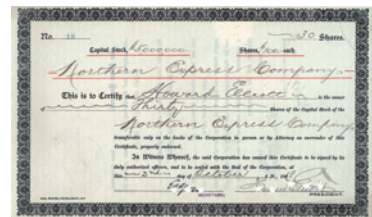 No. 18 30 Shares.
Capital Stock, $5000000 Shares, $100 each.
Northern Express Company
This is to Certify that Howard Elliott is the owner
of Thirty Shares of the Capital Stock of the
Northern Express Company
transferable only on the books of the Corporation in person or by Attorney on surrender of this
Certificate, properly endorsed.
In Witness Whereof, the said Corporation has caused this Certificate to be signed by its
duly authorized officers, and to be sealed with the Seal of the Corporation, at
this 2nd day of October
SECRETARY. PRESIDENT.